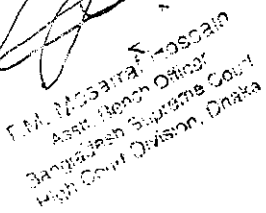 Hossain
Asstt. Bench Officer
Bangladesh Supreme Court
High Court Division, Dhaka